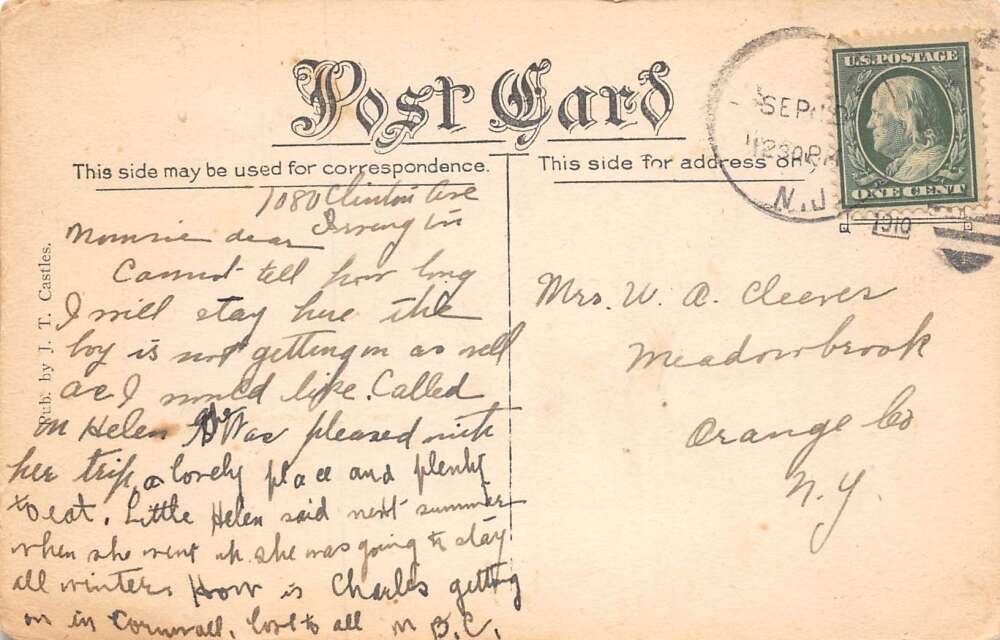 Post Card
This side may be used for correspondence.
This side for address only
U.S. POSTAGE
ONE CENT
SEP
1230 P
N.J.
1910
Pub. by J. T. Castles.
1080 Clinton Ave
Irvington
dear
Cannot tell how long
I will stay here the
boy is not getting on as well
as I would like. Called
on Helen she Was pleased with
her trip, a lovely place and plenty
to eat. Little Helen said next summer
when she went up she was going to stay
all winter. How is Charles getting
on in Cornwall. love to all M B. C.
Mrs. W. A. Cleever
Meadowbrook
Orange Co
N. Y.